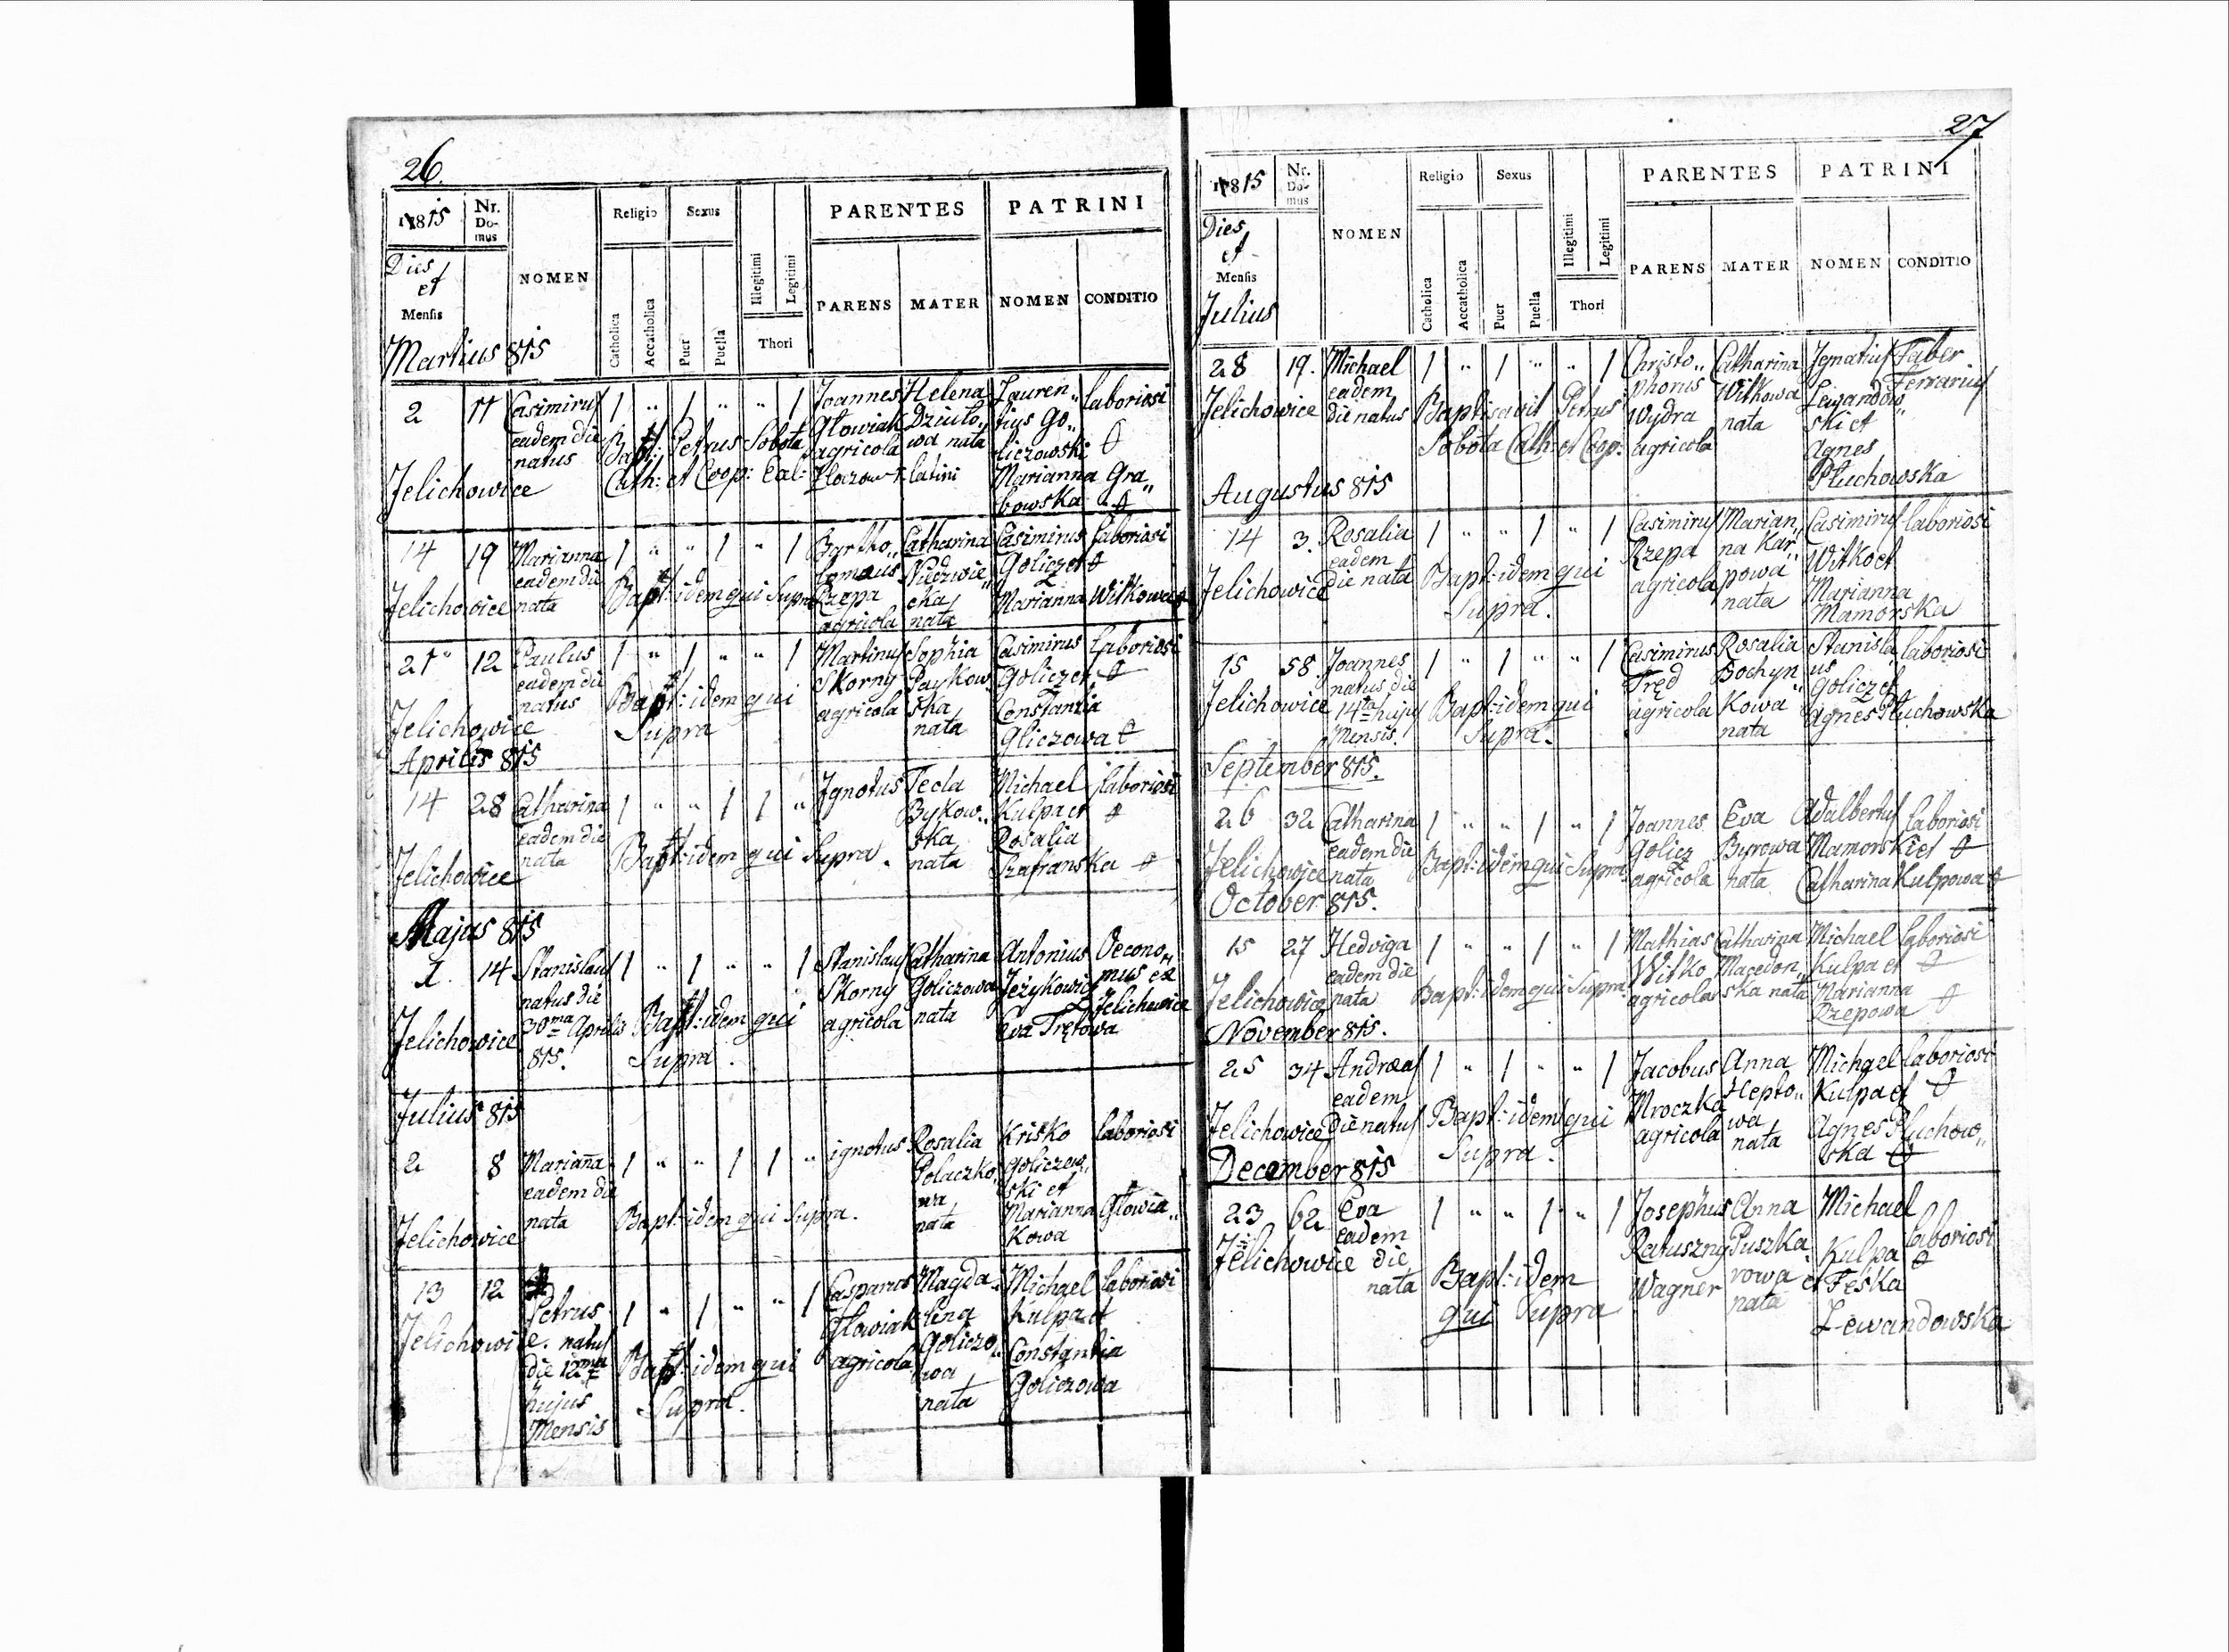 26.
1815 Nr. Domus NOMEN Religio Sexus PARENTES PATRINI
Dies et Mensis Catholica Accatholica Puer Puella Illegitimi Legitimi Thori PARENS MATER NOMEN CONDITIO
Martius 815
2 11 Casimirus 1 " 1 " " 1 Joannes Helena Lauren„ laboriosi
eadem die Głowiak Dziubo„ tius Go„
natus Bapt: Petrus Sobota agricola wa nata liczowski
Jelichowice Cath: et Coop: Marianna Gra„
bowska
14 19 Marianna 1 " " 1 " 1 Bartho„ Catharina Casimirus laboriosi
eadem die lomaus Niedzwie„ Golicz et
Jelichowice nata Bapt: idem qui Supra Rzepa cka Marianna Witkowa
agricola nata
21 12 Paulus 1 " 1 " " 1 Martinus Sophia Casimirus laboriosi
eadem die Skorny Paykow„ Golicz et
natus Bapt: idem qui agricola ska Constantia
Jelichowice Supra nata Gliczowa
Aprilis 815
14 28 Catharina 1 " " 1 1 " Ignotus Tecla Michael laboriosi
eadem die Bykow„ Kulpa et
nata Bapt: idem qui Supra. ska Rosalia
Jelichowice nata Szafranska
Majus 815
1. 14 Stanislaus 1 " 1 " " 1 Stanislaus Catharina Antonius Oecono„
natus die Skorny Goliczowa Jeżykowicz mus ex
30ma Aprilis Bapt: idem qui agricola nata et Jelichowice
Jelichowice 815. Supra. Eva Trętowa
Julius 815
2 8 Marianna 1 " " 1 1 " ignotus Rosalia Krisko laboriosi
eadem die Polaczko„ Goliczew„
nata Bapt: idem qui Supra. wa ski et
Jelichowice nata Marianna Głowia„
kowa
13 12 Petrus 1 " 1 " " 1 Casparus Magda„ Michael laboriosi
Jelichowice. natus Głowiak lena Kulpa et
die 12ma Bapt: idem qui agricola Goliczo„ Constantia
hujus Supra. wa Goliczowa
Mensis nata
27
1815 Nr. Domus NOMEN Religio Sexus PARENTES PATRINI
Dies et Mensis Catholica Accatholica Puer Puella Illegitimi Legitimi Thori PARENS MATER NOMEN CONDITIO
Julius
28 19. Michael 1 " 1 " " 1 Christo„ Catharina Ignatius Faber
eadem phorus Witkowa Lewandow„ Ferrarius
Jelichowice die natus Baptisavit Petrus Wydra nata ski et
Sobota Cath: et Coop: agricola Agnes
Pluchowska
Augustus 815
14 3. Rosalia 1 " " 1 " 1 Casimirus Marian„ Casimirus laboriosi
eadem Rzepa na Kar„ Witko et
Jelichowice die nata Bapt: idem qui agricola powa Marianna
Supra. nata Mamorska
15 58. Joannes 1 " 1 " " 1 Casimirus Rosalia Stanisla„ laboriosi
natus die Tręd Bochyn„ us Golicz et
Jelichowice 14ta hujus Bapt: idem qui agricola kowa Agnes Pluchowska
Mensis. Supra. nata
September 815.
26 32 Catharina 1 " " 1 " 1 Joannes Eva Adalbertus laboriosi
eadem die Golicz Byrowa Mamorski et
Jelichowice nata Bapt: idem qui Supra agricola nata Catharina Kulpowa
October 815.
15 27 Hedviga 1 " " 1 " 1 Mathias Catharina Michael laboriosi
eadem die Witko Macedon„ Kulpa et
Jelichowice nata Bapt: idem qui Supra agricola ska nata Marianna
Rzepowa
November 815.
25 34 Andreas 1 " 1 " " 1 Jacobus Anna Michael laboriosi
eadem Mroczka Hepto„ Kulpa et
Jelichowice die natus Bapt: idem qui agricola wa Agnes Pluchow„
Supra. nata ska
December 815
23 62 Eva 1 " " 1 " 1 Josephus Anna Michael
eadem Ratuszny Puszka„ Kulpa laboriosi
Jelichowice die Bapt: idem Wagner rowa et Feśka
nata qui Supra nata Lewandowska